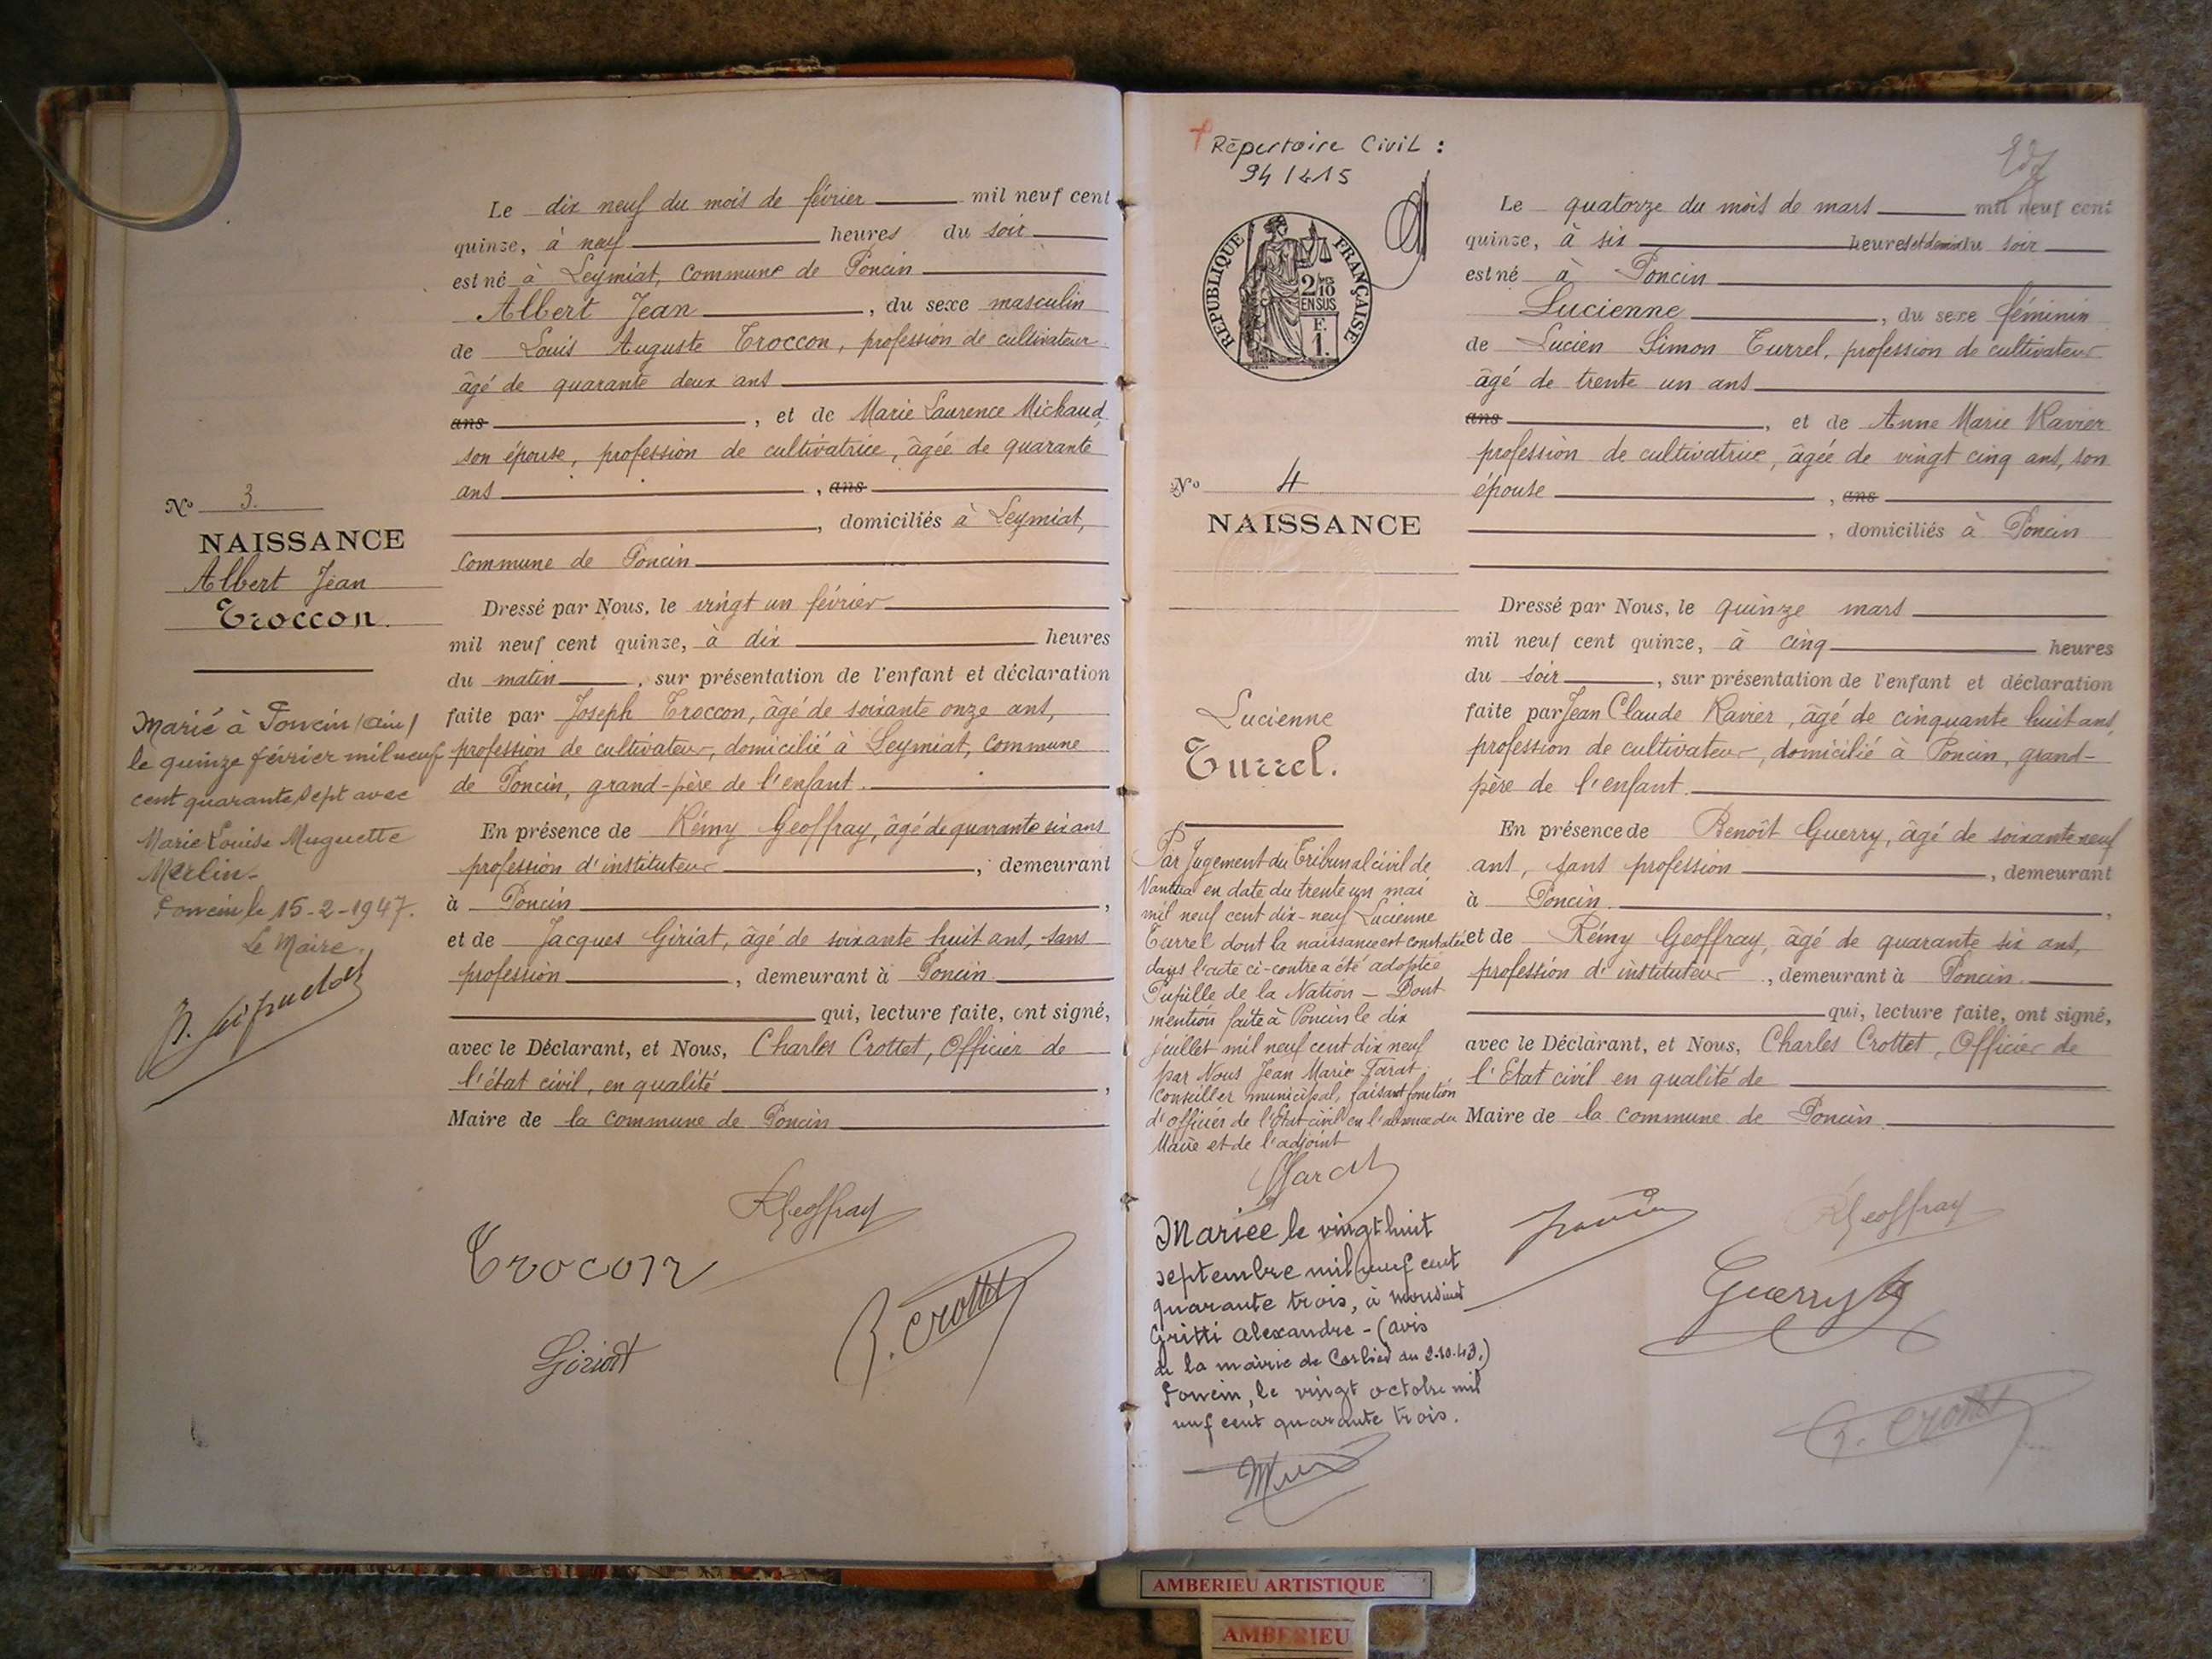 Le dix neuf du mois de février mil neuf cent
quinze, à neuf heures du soir
est né à Leymiat, commune de Poncin
Albert Jean, du sexe masculin
de Louis Auguste Troccon, profession de cultivateur
âgé de quarante deux ans
ans, et de Marie Laurence Michaud,
son épouse, profession de cultivatrice, âgée de quarante
ans, ans
, domiciliés à Leymiat,
commune de Poncin
Dressé par Nous, le vingt un février
mil neuf cent quinze, à dix heures
du matin, sur présentation de l'enfant et déclaration
faite par Joseph Troccon, âgé de soixante onze ans,
profession de cultivateur, domicilié à Leymiat, commune
de Poncin, grand-père de l'enfant.
En présence de Rémy Geoffray, âgé de quarante six ans
profession d'instituteur, demeurant
à Poncin,
et de Jacques Giriat, âgé de soixante huit ans, sans
profession, demeurant à Poncin
qui, lecture faite, ont signé,
avec le Déclarant, et Nous, Charles Crottet, Officier de
l'état civil, en qualité,
Maire de la commune de Poncin
RGeoffray
Trocon
C. Crottet
Giriat
No 3.
NAISSANCE
Albert Jean
Troccon.
Marié à Poncin (Ain)
le quinze février mil neuf
cent quarante sept avec
Marie Louise Muguette
Merlin.
Poncin le 15-2-1947.
Le Maire,
+ Répertoire Civil :
94 / 415
RÉPUBLIQUE FRANÇAISE
2/10
EN SUS
F.
1.
No 4
NAISSANCE
Lucienne
Turrel.
Par Jugement du Tribunal civil de
Nantua en date du trente un mai
mil neuf cent dix-neuf Lucienne
Turrel dont la naissance est constatée
dans l'acte ci-contre a été adoptée
Pupille de la Nation - Dont
mention faite à Poncin le dix
juillet mil neuf cent dix neuf
par Nous Jean Marie Tarat
conseiller municipal, faisant fonction
d'officier de l'Etat-civil en l'absence du
Maire et de l'adjoint
Mariée le vingt huit
septembre mil neuf cent
quarante trois, à
Gritti Alexandre - (avis
de la mairie de Corlier du 2.10.43.)
Poncin, le vingt octobre mil
neuf cent quarante trois.
Le quatorze du mois de mars mil neuf cent
quinze, à six heures et demie du soir
est né à Poncin
Lucienne, du sexe féminin
de Lucien Simon Turrel, profession de cultivateur
âgé de trente un ans
ans, et de Anne Marie Ravier
profession de cultivatrice, âgée de vingt cinq ans, son
épouse, ans
, domiciliés à Poncin
Dressé par Nous, le quinze mars
mil neuf cent quinze, à cinq heures
du soir, sur présentation de l'enfant et déclaration
faite par Jean Claude Ravier, âgé de cinquante huit ans,
profession de cultivateur, domicilié à Poncin, grand-
père de l'enfant.
En présence de Benoît Guerry, âgé de soixante neuf
ans, sans profession, demeurant
à Poncin,
et de Rémy Geoffray, âgé de quarante six ans,
profession d'instituteur, demeurant à Poncin.
qui, lecture faite, ont signé,
avec le Déclarant, et Nous, Charles Crottet, Officier de
l'Etat civil en qualité de
Maire de la commune de Poncin.
RGeoffray
Guerry
C. Crottet
AMBERIEU ARTISTIQUE
AMBERIEU